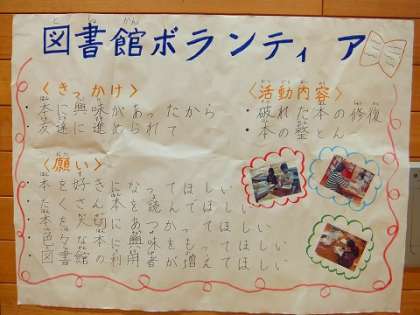 図書館ボランティア
<きっかけ>
・本に興味があったから
・友達に進められて
<活動内容>
・破れた本の修復
・本の整とん
<願い>
・本を好きになってほしい
・たくさん本を読んでほしい
・本を大切にあつかってほしい
・色々な本に興味をもってほしい
・図書館の利用者が増えてほしい